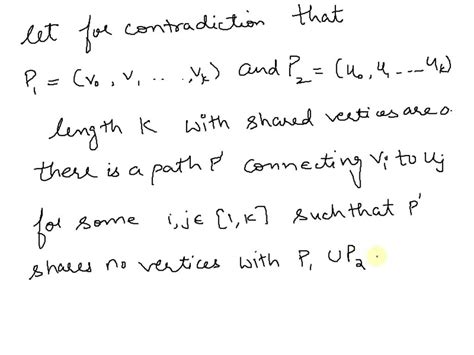 let for contradiction that
P₁ = (v₀, v, ..., vₖ) and P₂ = (u₀, u, --- uₖ)
length K with shared vertices are o.
there is a path P' connecting vi to uj
for some i,j ∈ [1,K] such that P'
shares no vertices with P₁ ∪ P₂.